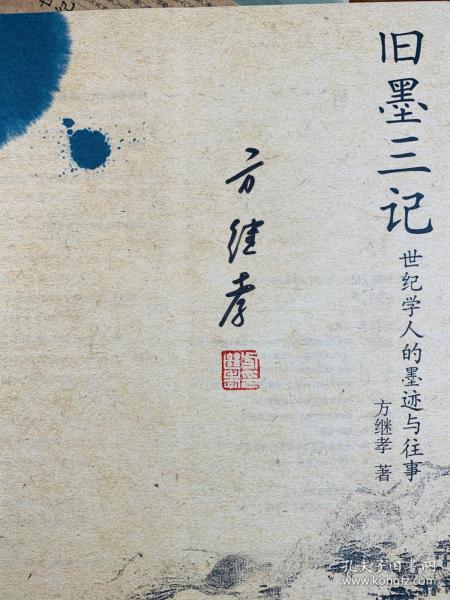 旧墨三记
世纪学人的墨迹与往事
方继孝 著
方继孝
孔夫子旧书网
www.kongfz.com